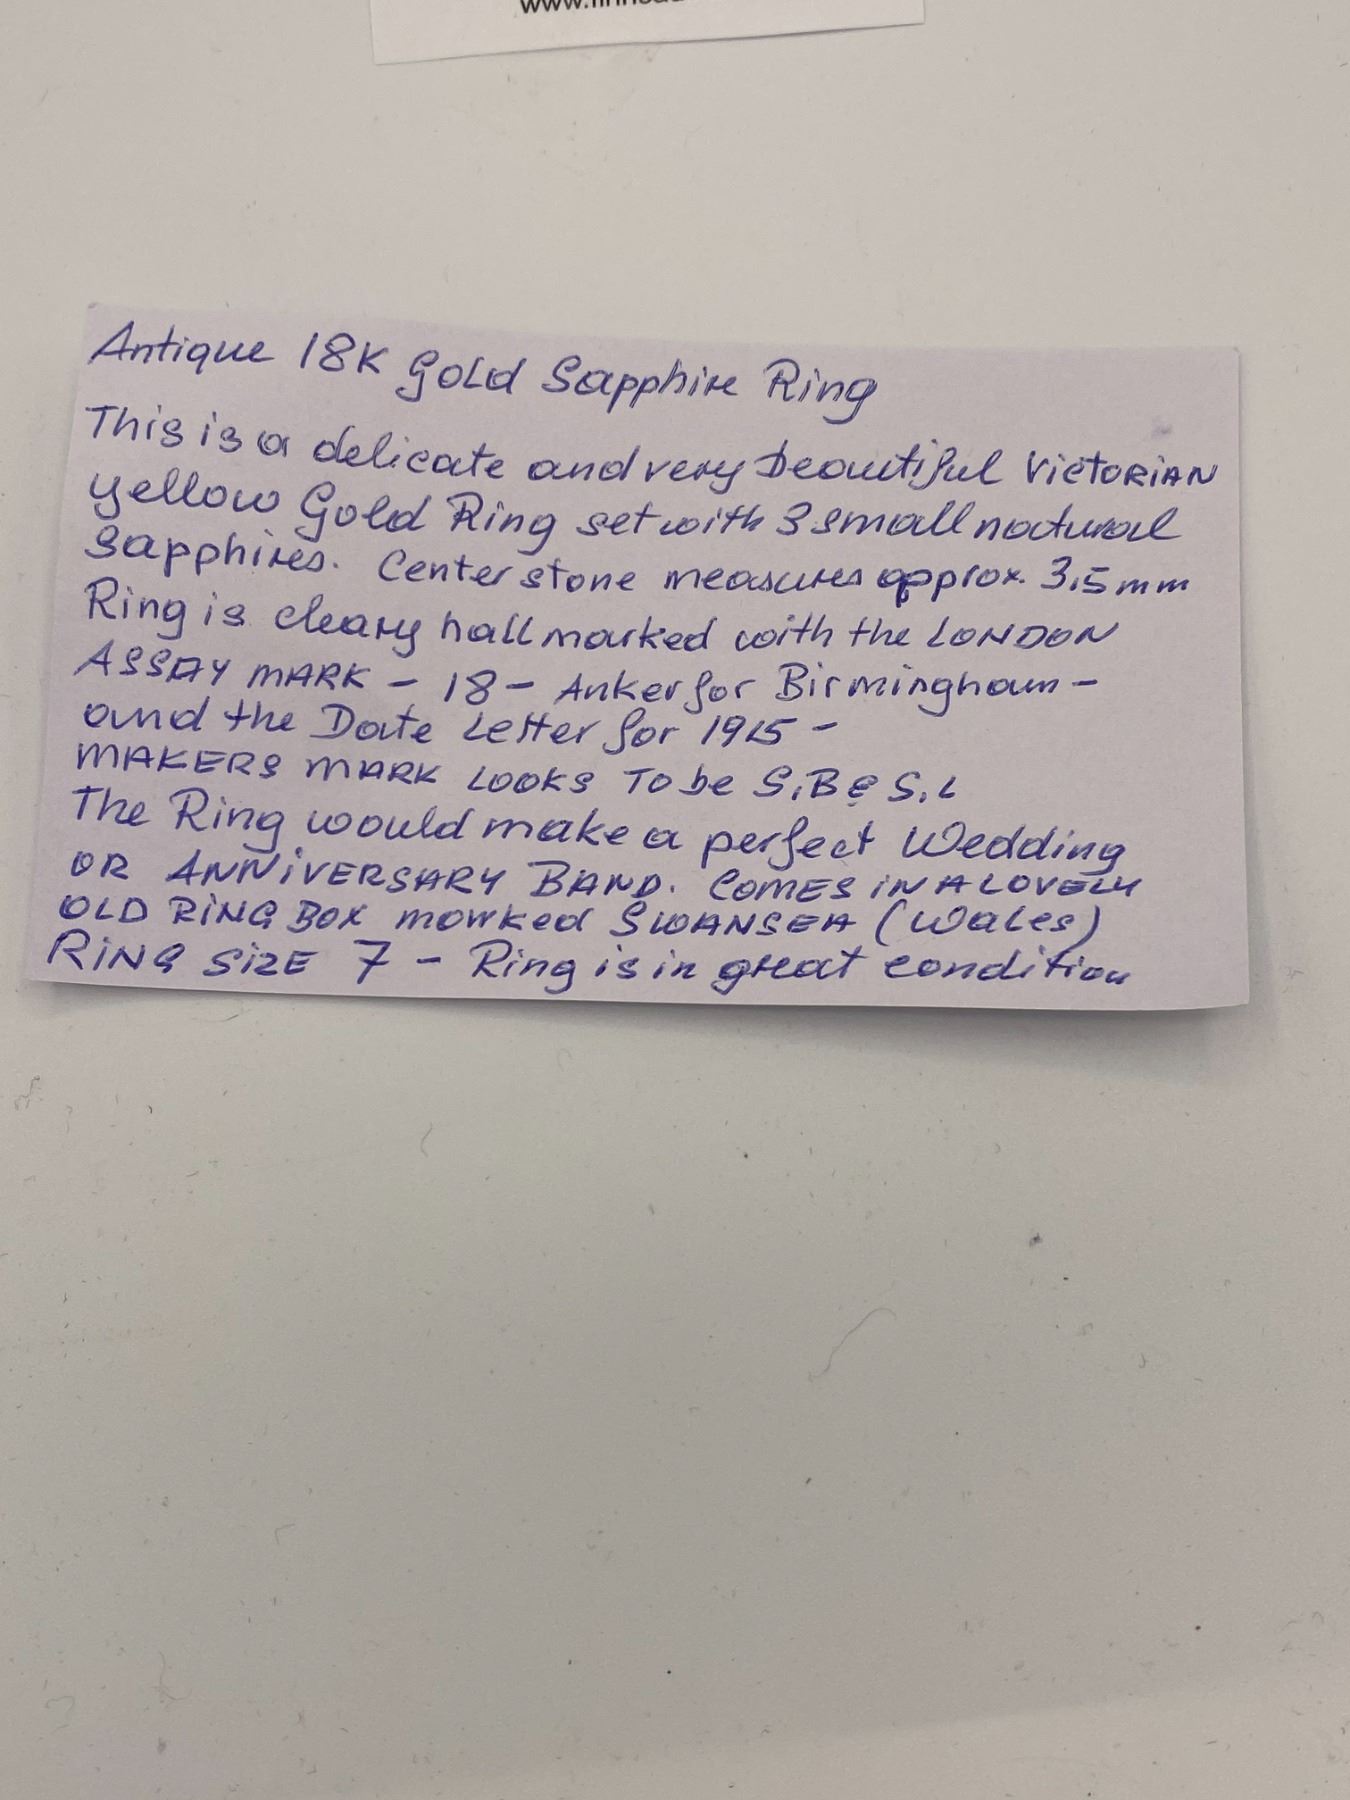 Antique 18K Gold Sapphire Ring
This is a delicate and very beautiful VICTORIAN
yellow Gold Ring set with 3 small natural
Sapphires. Center stone measures approx. 3,5 mm
Ring is cleary hallmarked with the LONDON
ASSAY MARK - 18 - Anker for Birmingham -
and the Date Letter for 1915 -
MAKERS MARK LOOKS To be S.B & S.L
The Ring would make a perfect Wedding
OR ANNIVERSARY BAND. COMES IN A LOVELY
OLD RING BOX marked SWANSEA (Wales)
RING SIZE 7 - Ring is in great condition